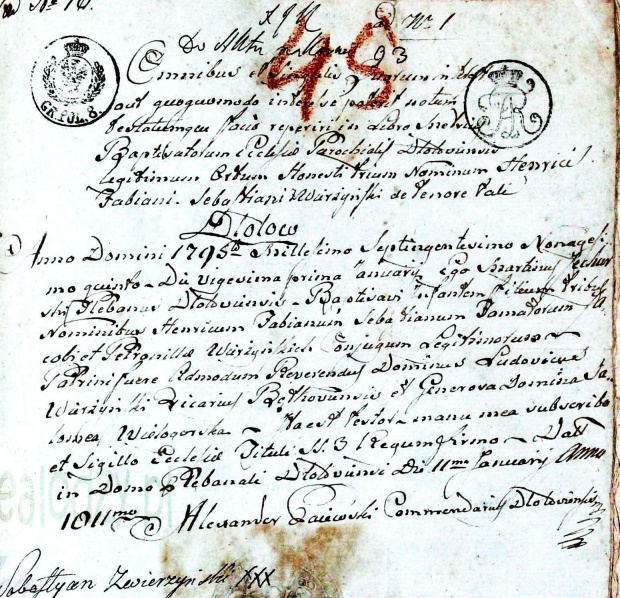 ad No 1
93
48
GR. POL. 8.
Omnibus et Singulis, quorum interest
aut quoquomodo interesse poterit notum
testatumque facio reperiri in Libro Metrices
Baptisatorum Eclesiæ Parochialis Dlotoviensis
legitimum Ortum Honesti trium Nominum Henrici
Fabiani. Sebastiani Warzynski de tenore tali
Dlotow
Anno Domini 1795to Millesimo Septingentesimo Nonagesi
mo quinto - Die vigesima prima January Ego Martinus
Plebanus Dlotoviensis - Baptisavi Infantem filium tribus
Nominibus Henricum Fabianum Sebastianum Famatorum Ia
cobi et Petronillæ Warzynskich Conjugum Legitimorum -
Patrini fuere Admodum Reverendus Dominus Ludovicus
Warzynski Vicarius et Generosa Domina
Wielogorska - Ita est testor - manu mea subscribo
et Sigillo Eclesiæ Tituli SS. 3 Regum firmo - Datt
in Domo Plebanali Dlotoviensi Die 11ma January Anno
1811mo Alexander Commendarius Dlotoviensis
Sebastyan Zwierzynski XXX